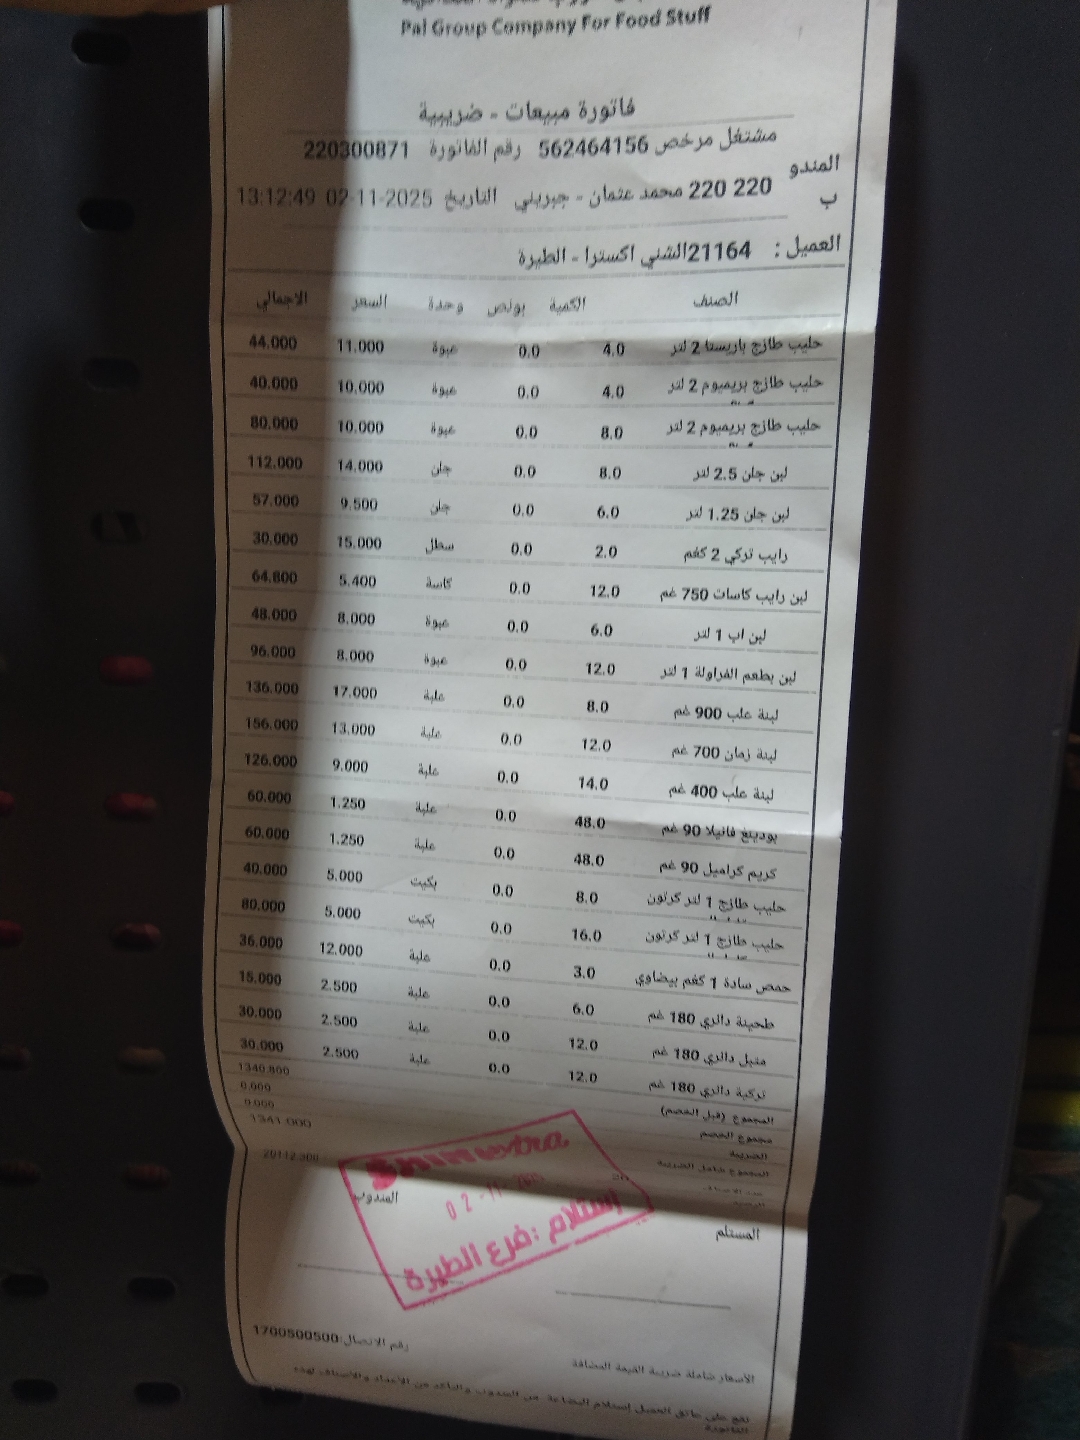 Pal Group Company For Food Stuff
فاتورة مبيعات - ضريبية
مشتغل مرخص 562464156 رقم الفاتورة 220300871
المندوب 220 220 محمد عتمان - جبريني التاريخ 02-11-2025 13:12:49
العميل : 21164الشني اكسترا - الطيرة
الصنف الكمية بونص وحدة السعر الاجمالي
حليب طازج باريستا 2 لتر 4.0 0.0 عبوة 11.000 44.000
حليب طازج بريميوم 2 لتر 4.0 0.0 عبوة 10.000 40.000
حليب طازج بريميوم 2 لتر 8.0 0.0 عبوة 10.000 80.000
لبن جلن 2.5 لتر 8.0 0.0 جلن 14.000 112.000
لبن جلن 1.25 لتر 6.0 0.0 جلن 9.500 57.000
رايب تركي 2 كغم 2.0 0.0 سطل 15.000 30.000
لبن رايب كاسات 750 غم 12.0 0.0 كاسة 5.400 64.800
لبن اب 1 لتر 6.0 0.0 عبوة 8.000 48.000
لبن بطعم الفراولة 1 لتر 12.0 0.0 عبوة 8.000 96.000
لبنة علب 900 غم 8.0 0.0 علبة 17.000 136.000
لبنة زمان 700 غم 12.0 0.0 علبة 13.000 156.000
لبنة علب 400 غم 14.0 0.0 علبة 9.000 126.000
بودينغ فانيلا 90 غم 48.0 0.0 علبة 1.250 60.000
كريم كراميل 90 غم 48.0 0.0 علبة 1.250 60.000
حليب طازج 1 لتر كرتون 8.0 0.0 بكيت 5.000 40.000
حليب طازج 1 لتر كرتون 16.0 0.0 بكيت 5.000 80.000
حمص سادة 1 كغم بيضاوي 3.0 0.0 علبة 12.000 36.000
طحينة دائري 180 غم 6.0 0.0 علبة 2.500 15.000
متبل دائري 180 غم 12.0 0.0 علبة 2.500 30.000
تركية دائري 180 غم 12.0 0.0 علبة 2.500 30.000
المجموع (قبل الخصم) 1340.800
مجموع الخصم 0.000
الضريبة 0.000
المجموع شامل الضريبة 1341.000
20112.300
Shini extra
02-11-2025
إستلام : فرع الطيرة
المستلم المندوب
رقم الاتصال:1700500500
الأسعار شاملة ضريبة القيمة المضافة
تقع على عاتق العميل إستلام البضاعة من المندوب والتأكد من الأعداد والأصناف لهذه
الفاتورة